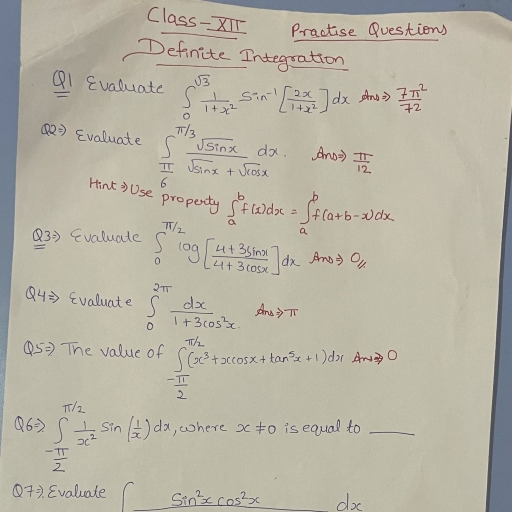 Class-XII Practise Questions
Definite Integration
Q1 Evaluate ∫₀^√3 1/(1+x²) Sin⁻¹[2x/(1+x²)] dx Ans⇒ 7π²/72
Q2⇒ Evaluate ∫_{π/6}^{π/3} √sinx/(√sinx + √cosx) dx. Ans⇒ π/12
Hint⇒ Use property ∫ₐᵇ f(x)dx = ∫ₐᵇ f(a+b-x)dx
Q3⇒ Evaluate ∫₀^{π/2} log[(4+3sinx)/(4+3cosx)] dx Ans⇒ 0//
Q4⇒ Evaluate ∫₀^{2π} dx/(1+3cos²x) Ans⇒ π
Q5⇒ The value of ∫_{-π/2}^{π/2} (x³+xcosx+tan⁵x+1)dx Ans⇒ 0
Q6⇒ ∫_{-π/2}^{π/2} 1/x² sin(1/x) dx, where x≠0 is equal to ____
Q7⇒ Evaluate ∫ Sin²x cos²x dx